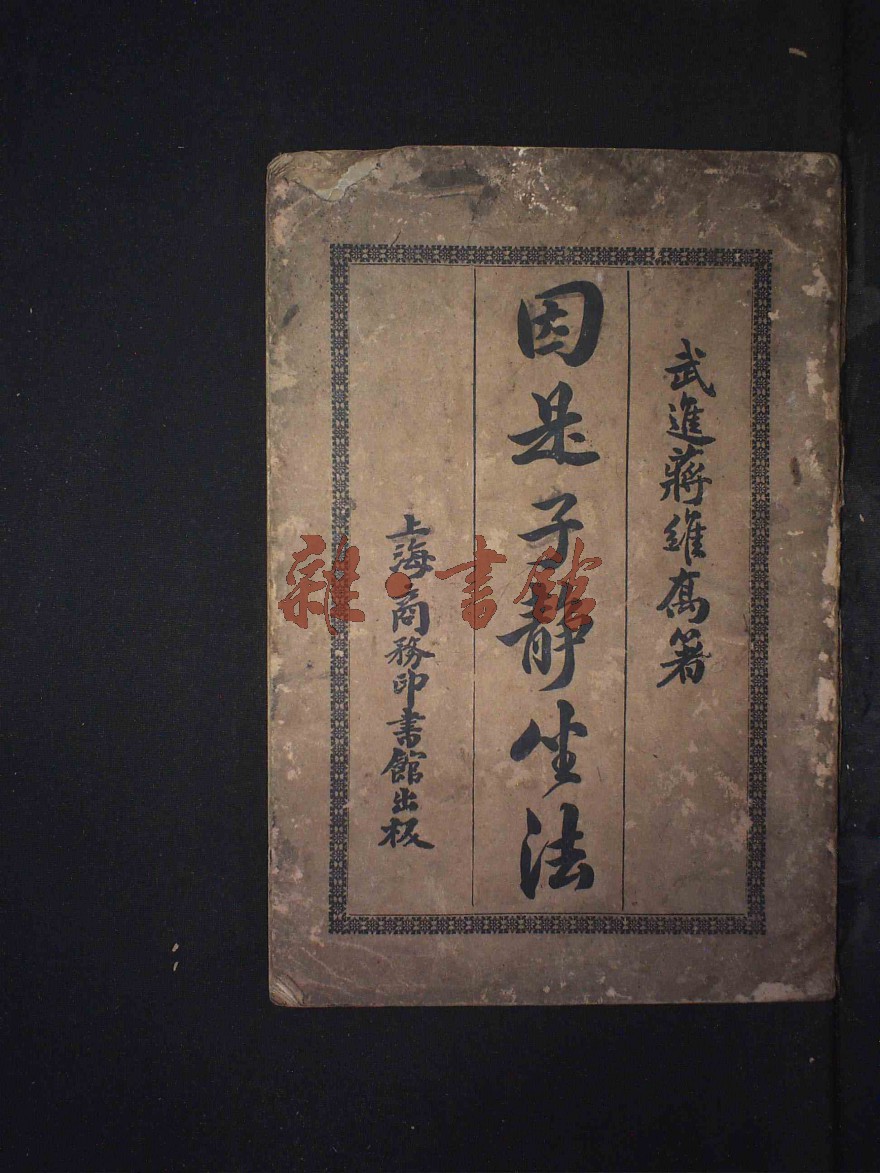 武進蔣維喬著
因是子靜坐法
上海商務印書館出板
雜·書館